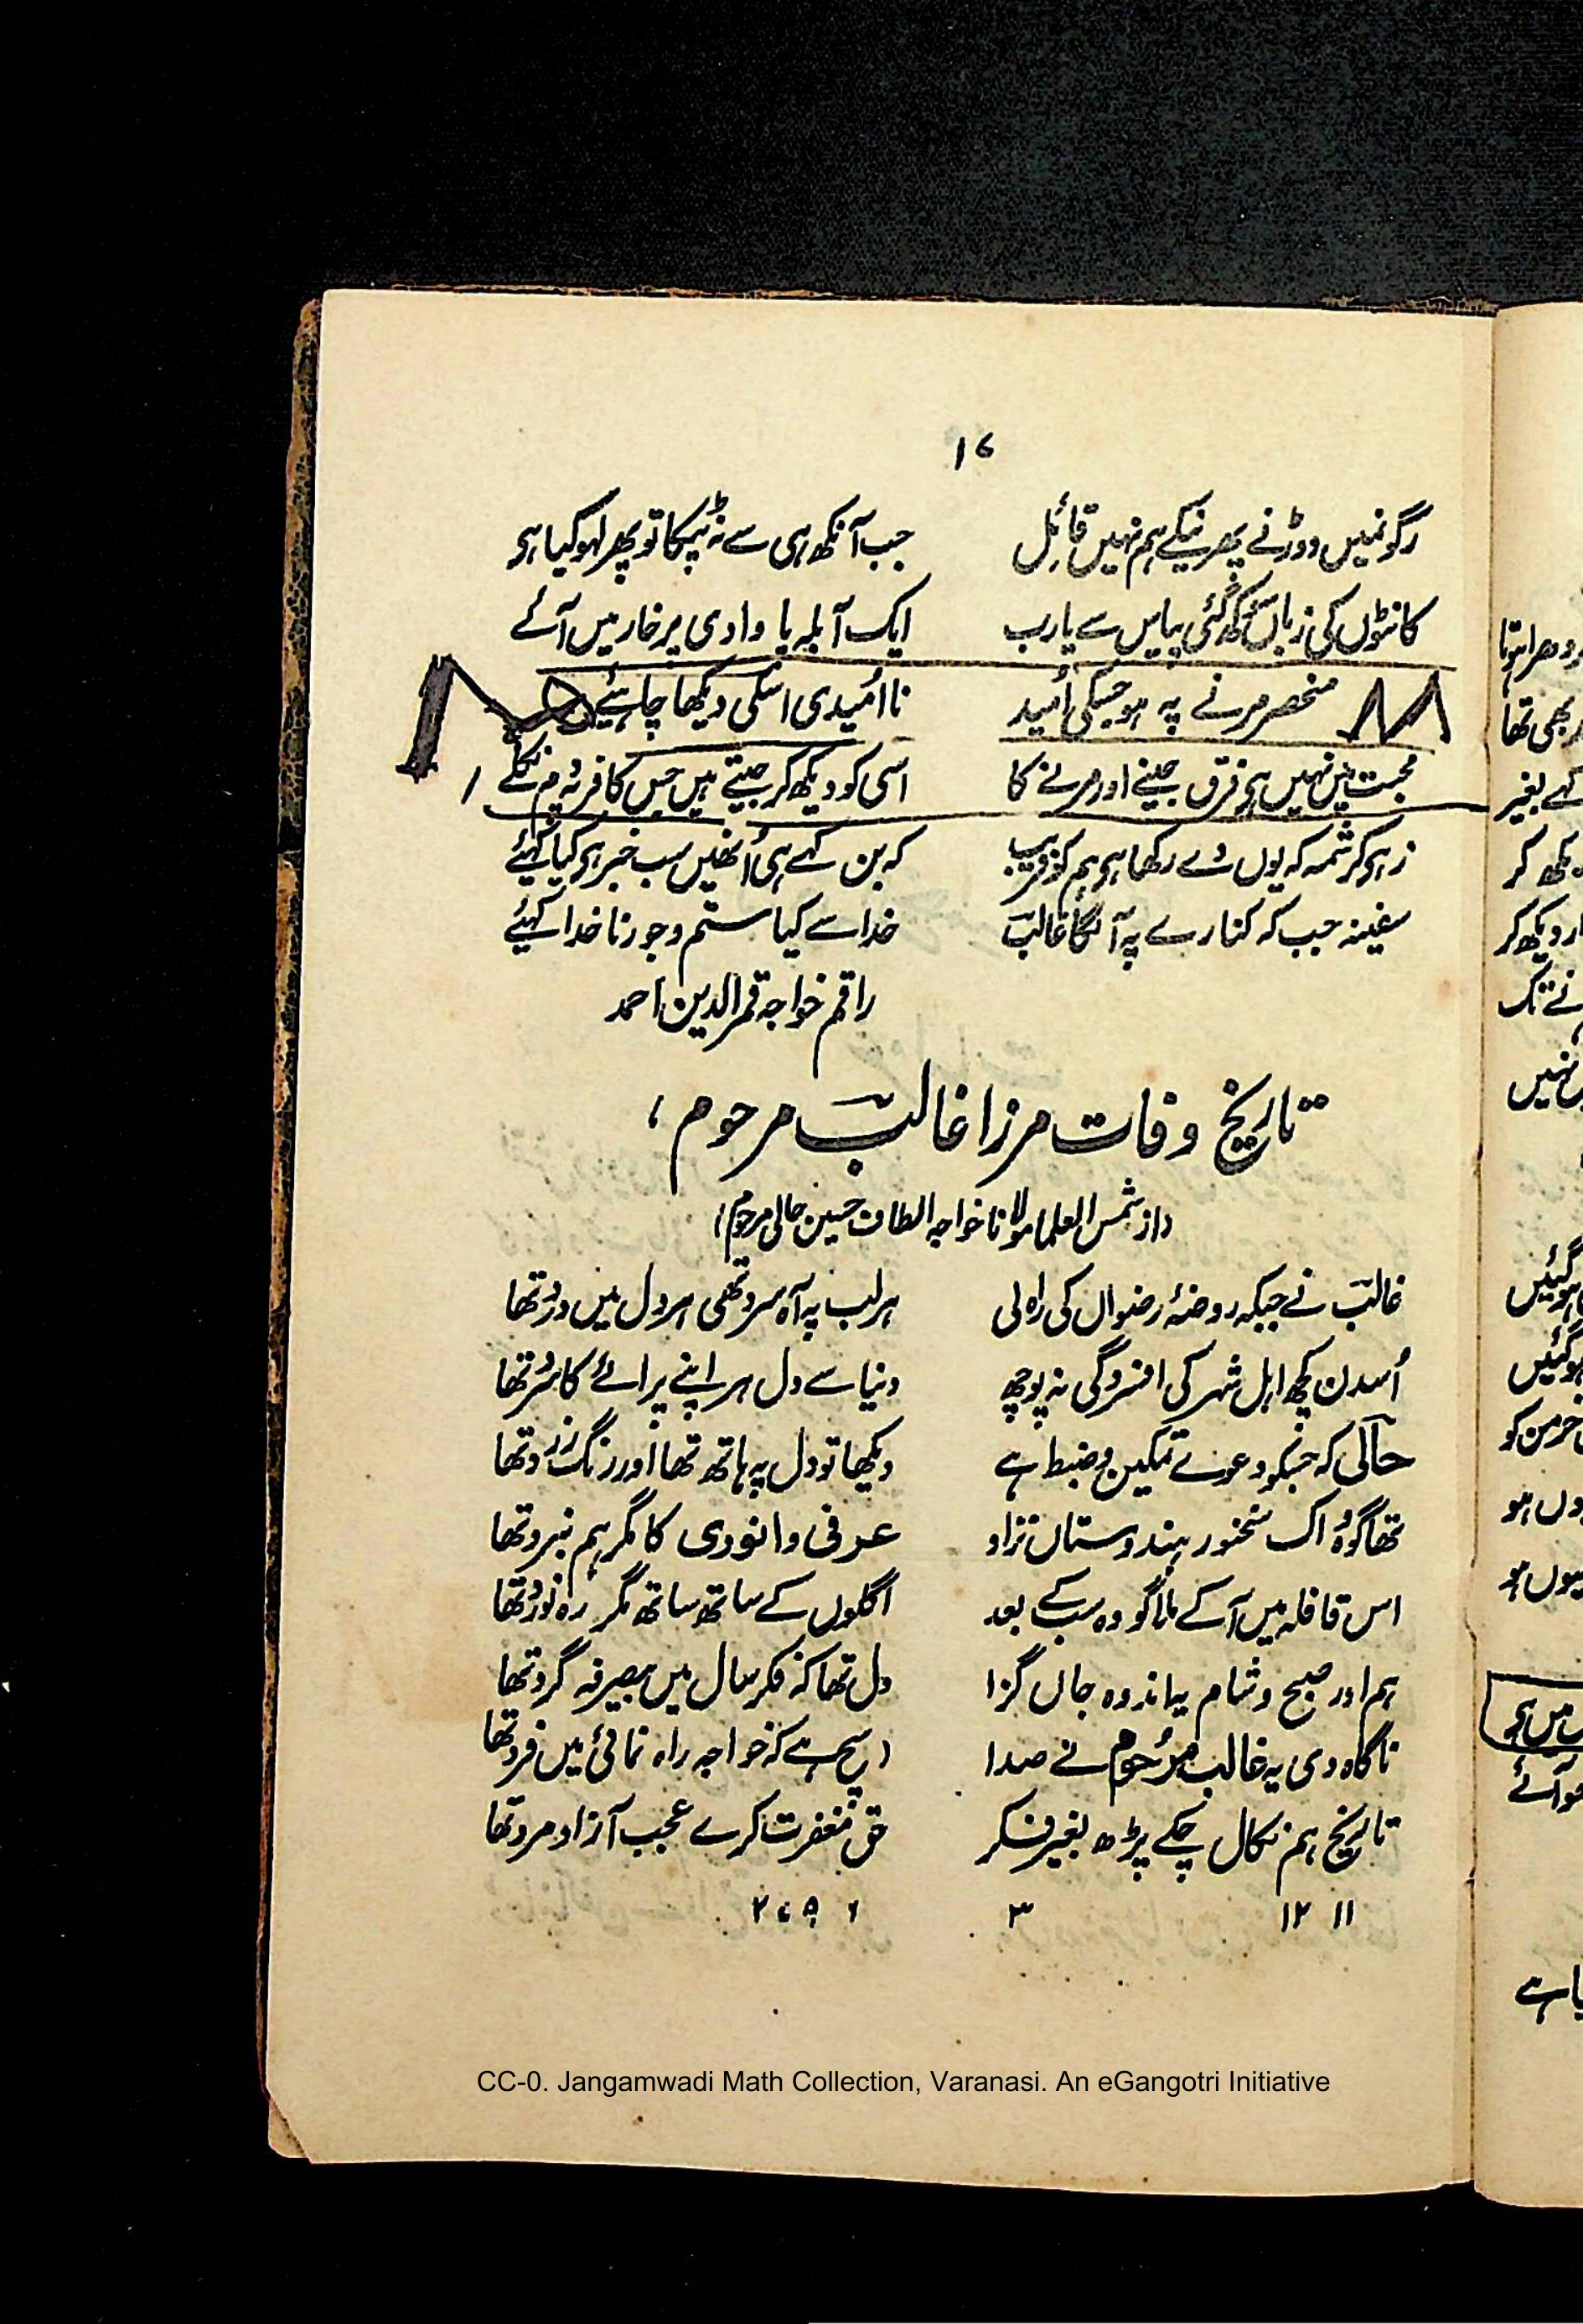 ۱۷
رگونمیں دوڑنے پھرنیکے ہم نہیں قائل جب آنکھ ہی سے نہ ٹپکا تو پھر لہو کیا ہی
کانٹوں کی زباں سوکھ گئی پیاس سے یارب ایک آبلہ پا وادی پر خار میں آئے
منحصر مرنے پہ ہو جسکی اُمید نا اُمیدی اسکی دیکھا چاہئیے
محبت میں نہیں ہی فرق جینے اور مرنے کا اسی کو دیکھ کر جیتے ہیں جس کافر پہ دم نکلے
زہی کرشمہ کہ یوں دے رکھا ہی ہم کو فریب کہ بن کہے ہی اُنھیں سب خبر ہی کیا کہئیے
سفینہ جب کہ کنارے پہ آ لگا غالبؔ خدا سے کیا ستم و جور ناخدا کہئیے
راقم خواجہ قمرالدین احمد
تاریخ وفات مرزا غالبؔ مرحوم،
(از شمس العلما مولانا خواجہ الطاف حسین حالی مرحوم)
غالبؔ نے جبکہ روضۂ رضواں کی راہ لی ہر لب پہ آہ سرد تھی ہر دل میں درد تھا
اُسدن کچھ اہل شہر کی افسردگی نہ پوچھ دنیا سے دل ہر اپنے پرائے کا سرد تھا
حآلی کہ جسکو دعوئے تمکین و ضبط ہے دیکھا تو دل پہ ہاتھ تھا اور رنگ زرد تھا
تھا گو وہ اک سخنور ہندوستاں نژاد عرفی و انوری کا مگر ہم نبرد تھا
اس قافلہ میں آکے ملا گو وہ سب کے بعد اگلوں کے ساتھ ساتھ مگر رہ نورد تھا
ہم اور صبح و شام یہ اندوہ جاں گزا دل تھا کہ فکر سال میں بیصرفہ گرد تھا
ناگاہ دی یہ غالب مرحوم نے صدا (سچ ہے کہ خواجہ راہ نمائی میں فرد تھا
تاریخ ہم نکال چکے پڑھ بغیر فکر حق مغفرت کرے عجب آزاد مرد تھا
۱۱ ۱۲ ۳
CC-0. Jangamwadi Math Collection, Varanasi. An eGangotri Initiative